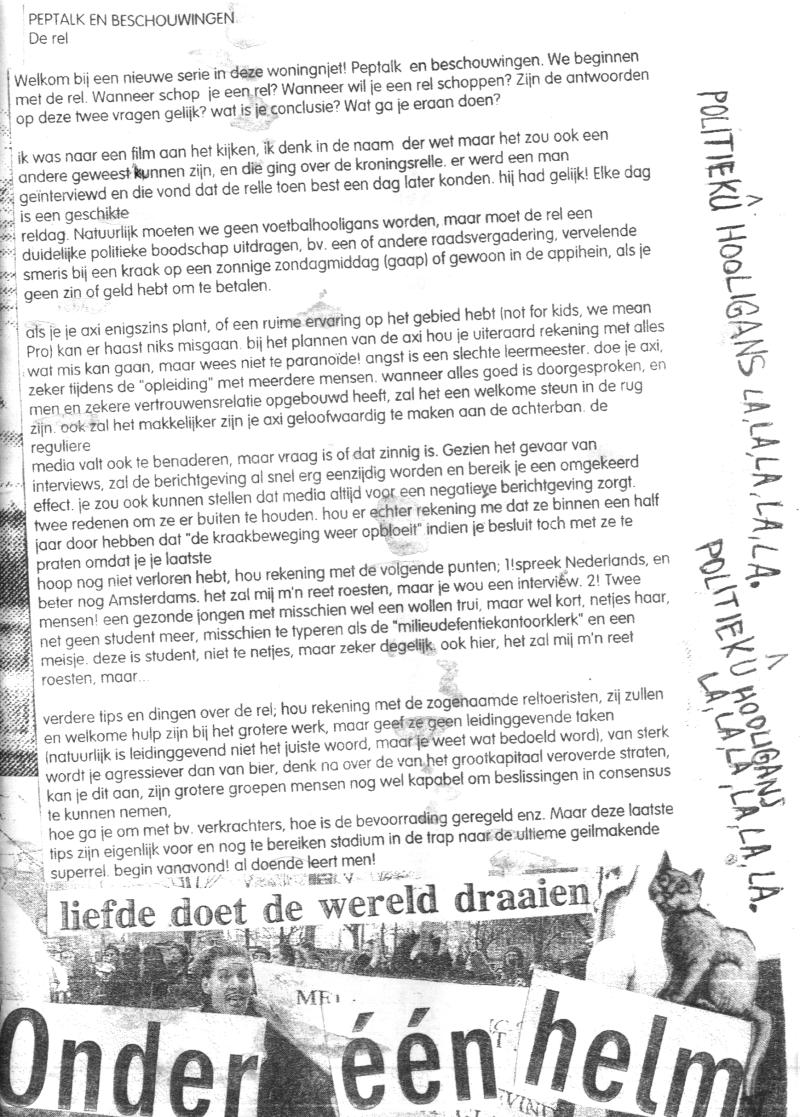 PEPTALK EN BESCHOUWINGEN
De rel
Welkom bij een nieuwe serie in deze woningnjet! Peptalk en beschouwingen. We beginnen
met de rel. Wanneer schop je een rel? Wanneer wil je een rel schoppen? Zijn de antwoorden
op deze twee vragen gelijk? wat is je conclusie? Wat ga je eraan doen?
ik was naar een film aan het kijken, ik denk in de naam der wet maar het zou ook een
andere geweest kunnen zijn, en die ging over de kroningsrelle. er werd een man
geïnterviewd en die vond dat de relle toen best een dag later konden. hij had gelijk! Elke dag
is een geschikte
reldag. Natuurlijk moeten we geen voetbalhooligans worden, maar moet de rel een
duidelijke politieke boodschap uitdragen, bv. een of andere raadsvergadering, vervelende
smeris bij een kraak op een zonnige zondagmiddag (gaap) of gewoon in de appihein, als je
geen zin of geld hebt om te betalen.
als je je axi enigszins plant, of een ruime ervaring op het gebied hebt (not for kids, we mean
Pro) kan er haast niks misgaan. bij het plannen van de axi hou je uiteraard rekening met alles
wat mis kan gaan, maar wees niet te paranoïde! angst is een slechte leermeester. doe je axi,
zeker tijdens de "opleiding" met meerdere mensen. wanneer alles goed is doorgesproken, en
men en zekere vertrouwensrelatie opgebouwd heeft, zal het een welkome steun in de rug
zijn. ook zal het makkelijker zijn je axi geloofwaardig te maken aan de achterban. de
reguliere
media valt ook te benaderen, maar vraag is of dat zinnig is. Gezien het gevaar van
interviews, zal de berichtgeving al snel erg eenzijdig worden en bereik je een omgekeerd
effect. je zou ook kunnen stellen dat media altijd voor een negatieve berichtgeving zorgt.
twee redenen om ze er buiten te houden. hou er echter rekening me dat ze binnen een half
jaar door hebben dat "de kraakbeweging weer opbloeit" indien je besluit toch met ze te
praten omdat je je laatste
hoop nog niet verloren hebt, hou rekening met de volgende punten; 1!spreek Nederlands, en
beter nog Amsterdams. het zal mij m'n reet roesten, maar je wou een interview. 2! Twee
mensen! een gezonde jongen met misschien wel een wollen trui, maar wel kort, netjes haar,
net geen student meer, misschien te typeren als de "milieudefentiekantoorklerk" en een
meisje. deze is student, niet te netjes, maar zeker degelijk. ook hier, het zal mij m'n reet
roesten, maar...
verdere tips en dingen over de rel; hou rekening met de zogenaamde reltoeristen, zij zullen
en welkome hulp zijn bij het grotere werk, maar geef ze geen leidinggevende taken
(natuurlijk is leidinggevend niet het juiste woord, maar je weet wat bedoeld word), van sterk
wordt je agressiever dan van bier, denk na over de van het grootkapitaal veroverde straten,
kan je dit aan, zijn grotere groepen mensen nog wel kapabel om beslissingen in consensus
te kunnen nemen,
hoe ga je om met bv. verkrachters, hoe is de bevoorrading geregeld enz. Maar deze laatste
tips zijn eigenlijk voor en nog te bereiken stadium in de trap naar de ultieme geilmakende
superrel. begin vanavond! al doende leert men!
POLITIEKÛ HOOLIGANS LA, LA, LA, LA, LA.
POLITIEKÛ HOOLIGANS
LA, LA, LA, LA, LA, LA.
liefde doet de wereld draaien
Onder één helm